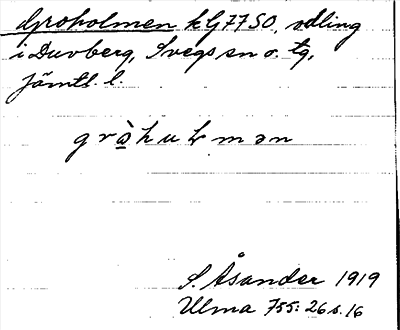 Groholmen kG7750, odling
i Duvberg, Svegs sn o. tg,
Jämtl. l.
grὰhuḷmən
S. Åsander 1919
Ulma 755: 26 s. 16